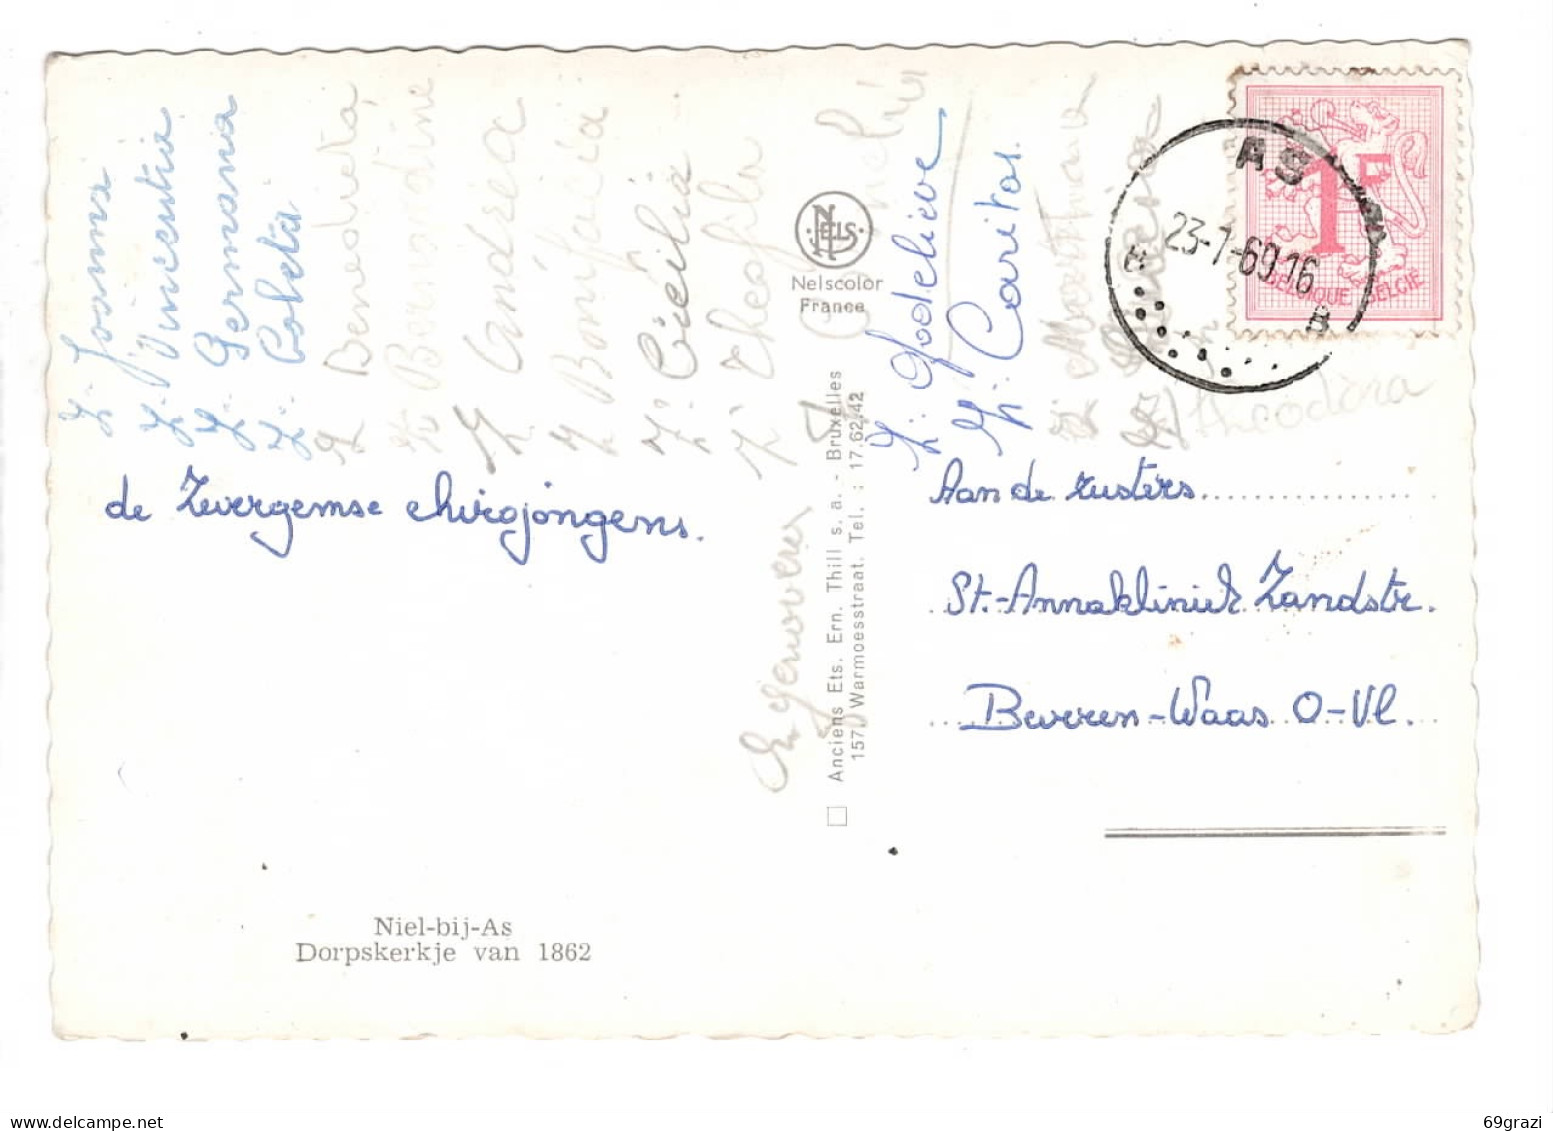 Z. Joanna
Z. Vincentia
Z. Germana
Z. Coleta
Z Benedicta
Z. Bernardine
Z. Andrea
Z Bonifacia
Z. Cécilia
Z. Theofila
Z. Godelieve
Z. Caritas.
Z. Marthana
Z. Theodora
de Zevergemse chirojongens.
NELS
Nelscolor
France
Anciens Ets. Ern. Thill s. a. - Bruxelles
157, Warmoesstraat. Tel. : 17.62.42
1F
BELGIQUE BELGIË
AS
23-7-69.16
B
Aan de zusters
St.-Annakliniek Zandstr.
Beveren-Waas O-Vl.
Niel-bij-As
Dorpskerkje van 1862
delcampe.net
69grazi